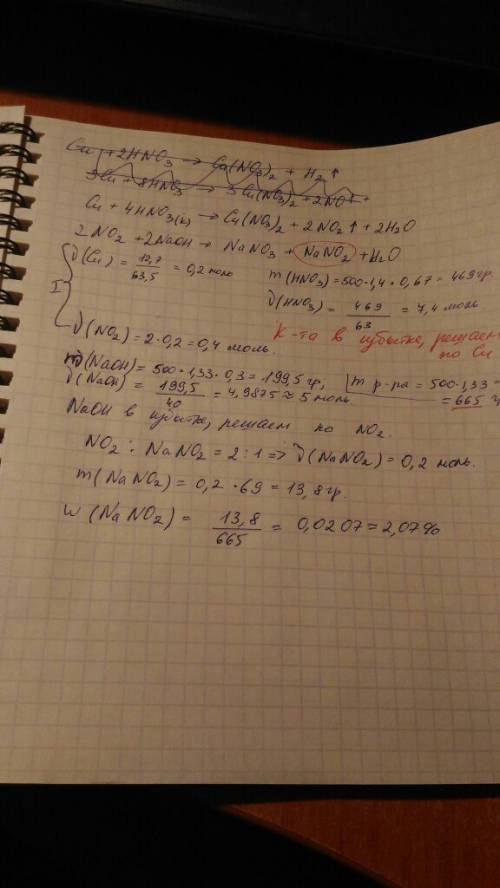 Cu + 2HNO₃ → Cu(NO₃)₂ + H₂↑
3Cu + 8HNO₃ → 3Cu(NO₃)₂ + 2NO↑ +
Cu + 4HNO₃(к) → Cu(NO₃)₂ + 2NO₂↑ + 2H₂O
2NO₂ + 2NaOH → NaNO₃ + NaNO₂ + H₂O
I
ν(Cu) = 12,7/63,5 = 0,2 моль
m(HNO₃) = 500·1,4·0,67 = 469 гр.
ν(HNO₃) = 469/63 = 7,4 моль
К-та в избытке, решаем по Cu
ν(NO₂) = 2·0,2 = 0,4 моль.
m(NaOH) = 500·1,33·0,3 = 199,5 гр,
m р-ра = 500·1,33 = 665 гр
ν(NaOH) = 199,5/40 = 4,9875 ≈ 5 моль.
NaOH в избытке, решаем по NO₂.
NO₂ : NaNO₂ = 2:1 => ν(NaNO₂) = 0,2 моль.
m(NaNO₂) = 0,2 · 69 = 13,8 гр.
w(NaNO₂) = 13,8/665 = 0,0207 = 2,07%